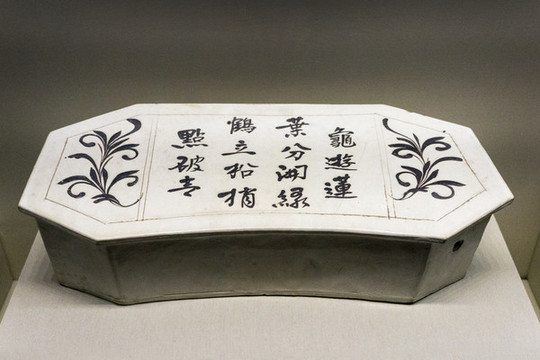 龜遊蓮
葉分開緑
鶴立松梢
點破青